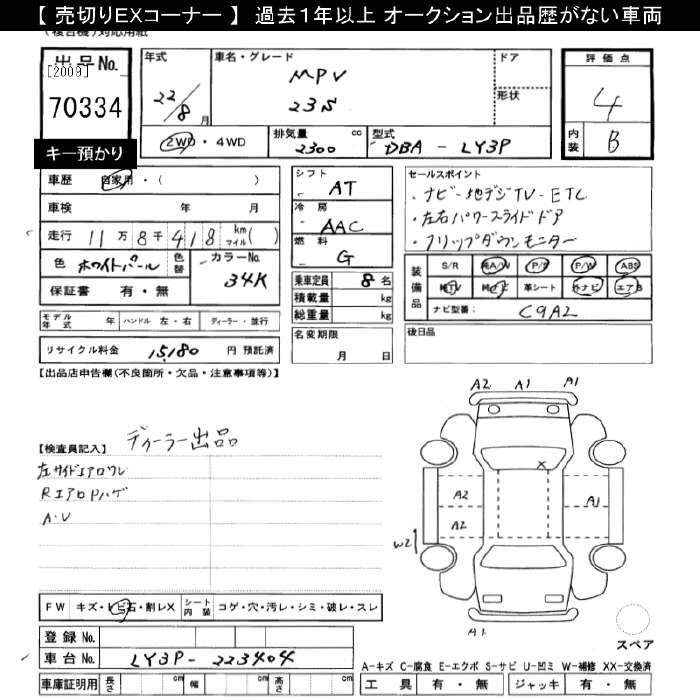 【 売切りEXコーナー 】 過去１年以上 オークション出品歴がない車両
(複合機)対応用紙
出品No.
[2009]
70334
キー預かり
年式
22/8 月
車名・グレード
MPV
23S
ドア
形状
2WD・4WD
排気量 cc
2300
型式
DBA - LY3P
評価点
4
内装 B
車歴 自家用・( )
車検 年 月
走行 11万8千418 km マイル( )
色 ホワイトパール 色替
カラーNo. 34K
保証書 有・無
シフト
AT
冷房
AAC
燃料
G
乗車定員 8 名
積載量 kg
総重量 kg
名変期限
月 日
セールスポイント
・ナビ-地デジTV-ETC
・左右パワースライドドア
・フリップダウンモニター
装備品
S/R 純A/W P/S P/W ABS
純TV 純ナビ 革シート 外ナビ エアB
ナビ型番: C9A2
後日品
モデル年式 年 ハンドル 左・右 ディーラー・並行
リサイクル料金 15,180 円 預託済
【出品店申告欄(不良箇所・欠品・注意事項等)】
【検査員記入】
ディーラー出品
左サイドエアロワレ
RエアロPハゲ
A・U
A2 A1 A1
X
A2
A1
A2
W2
A1
スペア
FW キズ・トビ石・割レX
シート内装 コゲ・穴・汚レ・シミ・破レ・スレ
登録 No.
車台 No. LY3P-223404
車庫証明用 長さ cm 幅 cm 高さ cm
A-キズ C-腐食 E-エクボ S-サビ U-凹ミ W-補修 XX-交換済
工具 有・無 ジャッキ 有・無